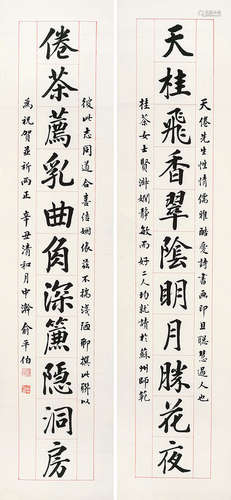 天倦先生性情儒雅酷愛詩書画印且聰慧過人也
天桂飛香翠陰眀月勝花夜
桂茶女士賢淑嫻靜敏而好二人均就讀於蘇州師範
彼此志同道合喜結姻依茲不揣淺陋聊撰此聯以
倦茶薦乳曲角深簾隱洞房
爲祝賀並祈两正 辛丑清和月申瀚 俞平伯